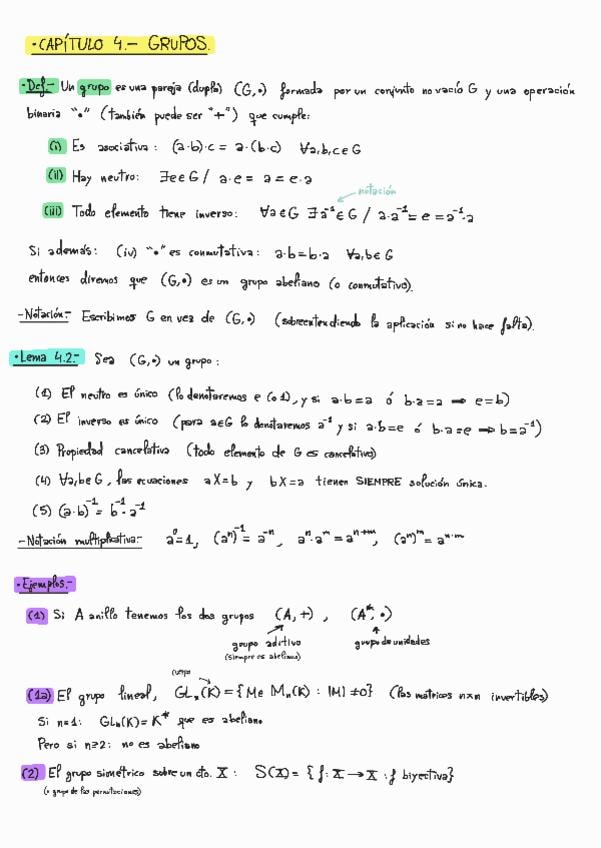 ·CAPÍTULO 4.- GRUPOS.
·Def.- Un grupo es una pareja (dupla) (G,•) formada por un conjunto no vacío G y una operación
binaria "•" (también puede ser "+") que cumple:
(i) Es asociativa: (a·b)·c = a·(b·c) ∀a,b,c∈G
(ii) Hay neutro: ∃e∈G / a·e = a = e·a
notación
(iii) Todo elemento tiene inverso: ∀a∈G ∃a⁻¹∈G / a·a⁻¹=e=a⁻¹·a
Si además: (iv) "•" es conmutativa: a·b=b·a ∀a,b∈G
entonces diremos que (G,•) es un grupo abeliano (o conmutativo).
-Notación:- Escribimos G en vez de (G,•) (sobreentendiendo la aplicación si no hace falta).
·Lema 4.2.- Sea (G,•) un grupo:
(1) El neutro es único (lo denotaremos e (o 1), y si a·b=a ó b·a=a ⟹ e=b)
(2) El inverso es único (para a∈G lo denotaremos a⁻¹ y si a·b=e ó b·a=e ⟹ b=a⁻¹)
(3) Propiedad cancelativa (todo elemento de G es cancelativo)
(4) ∀a,b∈G, las ecuaciones aX=b y bX=a tienen SIEMPRE solución única.
(5) (a·b)⁻¹ = b⁻¹·a⁻¹
-Notación multiplicativa:- a⁰=1, (aⁿ)⁻¹ = a⁻ⁿ, aⁿ·aᵐ = aⁿ⁺ᵐ, (aⁿ)ᵐ = aⁿ·ᵐ
·Ejemplos.-
(1) Si A anillo tenemos los dos grupos (A,+), (A*,•)
grupo aditivo grupo de unidades
(siempre es abeliano)
cuerpo
(1a) El grupo lineal, GLₙ(K) = {M∈Mₙ(K) : |M|≠0} (las matrices n×n invertibles)
Si n=1: GLₙ(K)=K* que es abeliano
Pero si n≥2: no es abeliano
(2) El grupo simétrico sobre un cto. X: S(X) = {f: X→X : f biyectiva}
(o grupo de las permutaciones)